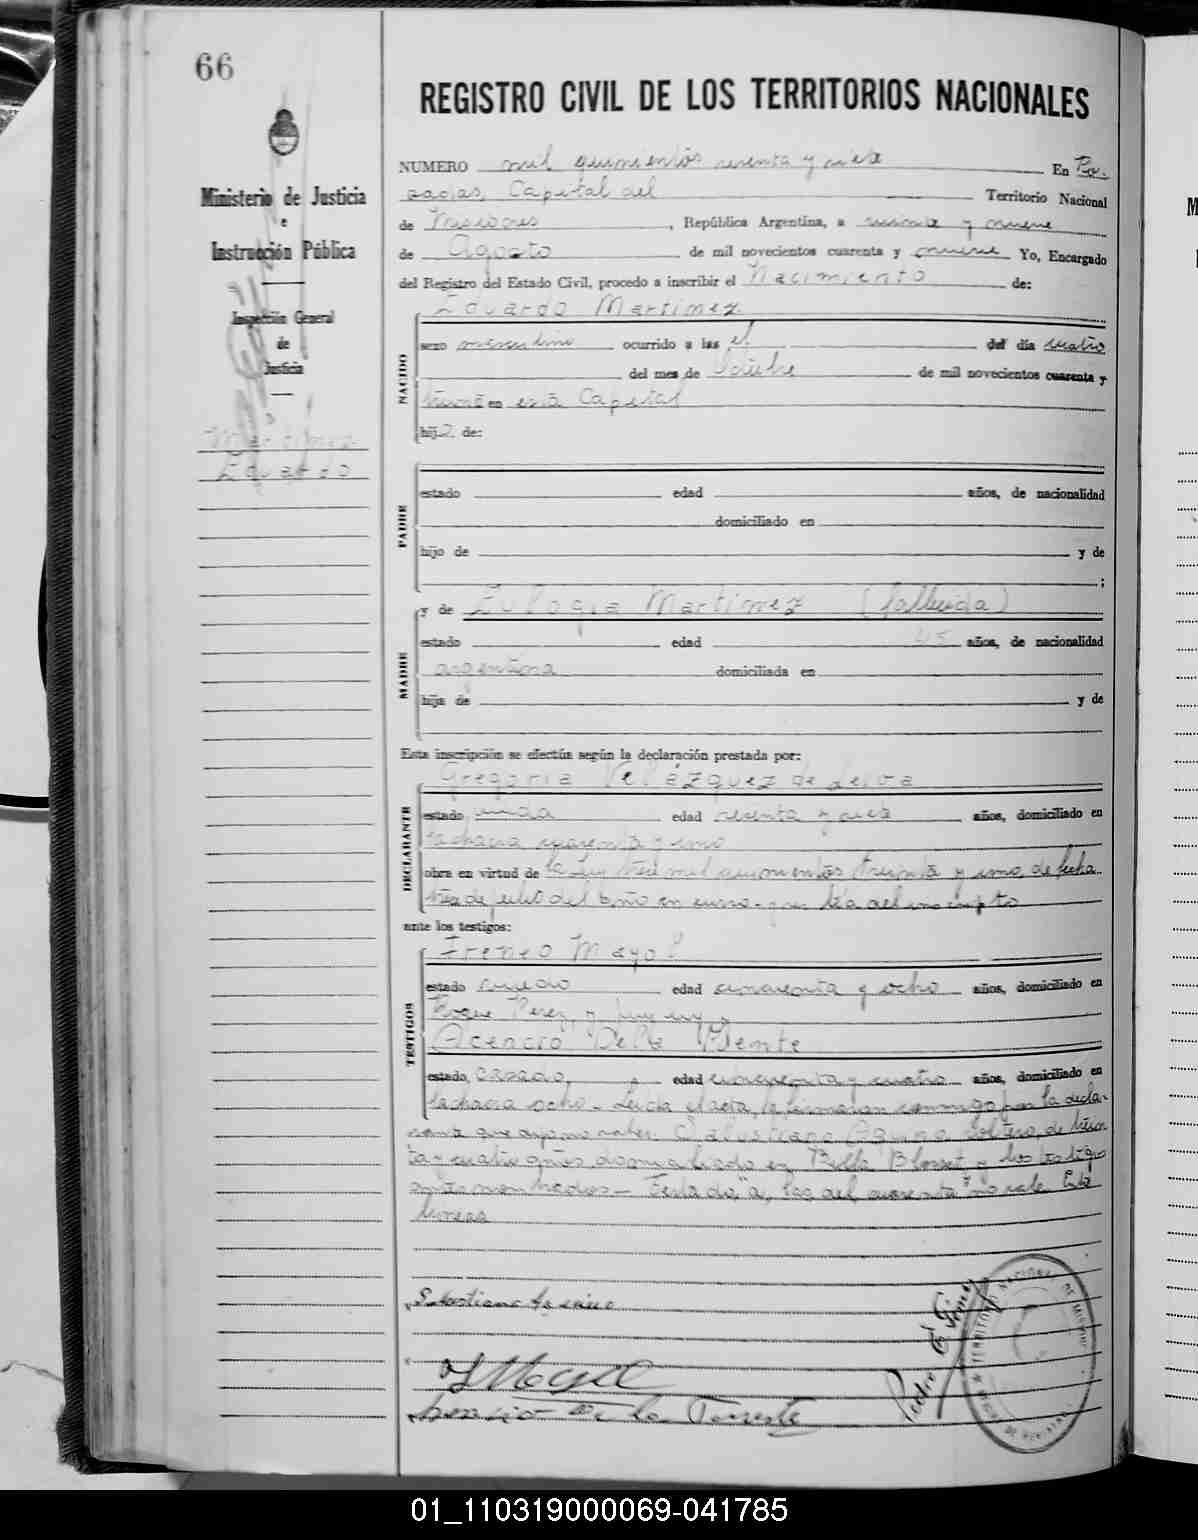 66
REGISTRO CIVIL DE LOS TERRITORIOS NACIONALES
Ministerio de Justicia
e
Instrucción Pública
Inspección General
de
Justicia
Martinez
Eduardo
NUMERO mil quinientos sesenta y siete En Po-
sadas, Capital del Territorio Nacional
de Misiones, República Argentina, a veinte y nueve
de Agosto de mil novecientos cuarenta y nueve Yo, Encargado
del Registro del Estado Civil, procedo a inscribir el Nacimiento de:
Eduardo Martinez
NACIO
sexo masculino ocurrido a las el del día cuatro
del mes de Octubre de mil novecientos cuarenta y
en esta Capital
hijo de:
PADRE
estado edad años, de nacionalidad
domiciliado en
hijo de y de
;
MADRE
y de Eulogia Martinez (fallecida)
estado edad años, de nacionalidad
argentina domiciliada en
hija de y de
Esta inscripción se efectúa según la declaración prestada por:
DECLARANTE
Gregoria Velázquez de Leiva
estado viuda edad sesenta y siete años, domiciliado en
chacra cuarenta y uno
obra en virtud de la Ley trece mil quinientos treinta y uno, de fecha
de julio del año en curso - por tía del inscripto
ante los testigos:
TESTIGOS
Ireneo Mayol
estado viudo edad cincuenta y ocho años, domiciliado en
Roque Perez, y
Acencio De la Puente
estado casado, edad cincuenta y cuatro años, domiciliado en
chacra ocho - Leida el acta, la firmaron conmigo, por la decla-
rante que dijo no saber, Aquino, soltero, de trein-
ta y cuatro años domiciliado en Villa Blosset, y los testigos
antes nombrados - Testado, "a, las, del, cuarenta" no vale. Esta
TERRITORIO NACIONAL DE MISIONES